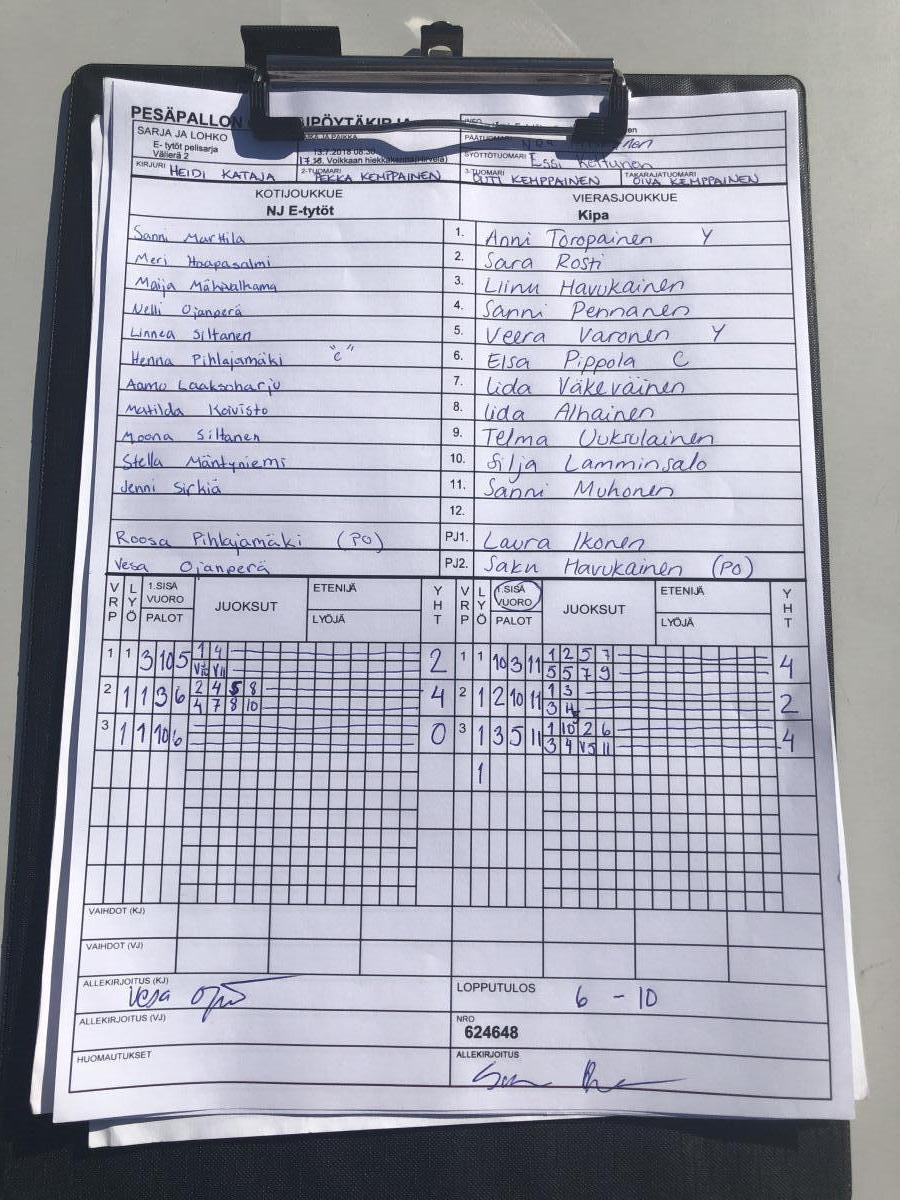 PESÄPALLON
SARJA JA LOHKO
E- tytöt pelisarja
Välierä 2
13.7.2018 08:30
17 38. Voikkaan hiekkakenttä(Hirvelä)
PÄÄTUOMARI
SYÖTTÖTUOMARI Essi Kettunen
KIRJURI HEIDI KATAJA 2-TUOMARI PEKKA KEMPPAINEN 3-TUOMARI OUTI KEMPPAINEN TAKARAJATUOMARI OIVA KEMPPAINEN
KOTIJOUKKUE VIERASJOUKKUE
NJ E-tytöt Kipa
Sanni Marttila 1. Anni Toropainen Y
Meri Haapasalmi 2. Sara Rosti
Maija 3. Liinu Havukainen
Nelli Ojanperä 4. Sanni Pennanen
Linnea Siltanen 5. Veera Varonen Y
Henna Pihlajamäki "c" 6. Elsa Pippola C
Aamu Laaksoharju 7. Iida Väkeväinen
Matilda Koivisto 8. Iida Alhainen
Moona Siltanen 9. Telma Uuksulainen
Stella Mäntyniemi 10. Silja Lamminsalo
Jenni Sirkiä 11. Sanni Muhonen
12.
Roosa Pihlajamäki (PO) PJ1. Laura Ikonen
Vesa Ojanperä PJ2. Saku Havukainen (PO)
VRP LYÖ 1.SISÄ VUORO PALOT JUOKSUT ETENIJÄ LYÖJÄ YHT VRP LYÖ 1.SISÄ VUORO PALOT JUOKSUT ETENIJÄ LYÖJÄ YHT
1 1 3 10 5 1 4 2 1 1 10 3 11 1 2 5 7 4
VII 5 5 7 9
2 1 1 3 6 2 4 5 8 4 2 1 2 10 11 1 3 2
4 7 8 10 3 4
3 1 1 10 6 0 3 1 3 5 11 1 10 2 6 4
3 4 V5 11
1
VAIHDOT (KJ)
VAIHDOT (VJ)
ALLEKIRJOITUS (KJ) Vesa LOPPUTULOS 6 - 10
ALLEKIRJOITUS (VJ) NRO
624648
HUOMAUTUKSET ALLEKIRJOITUS